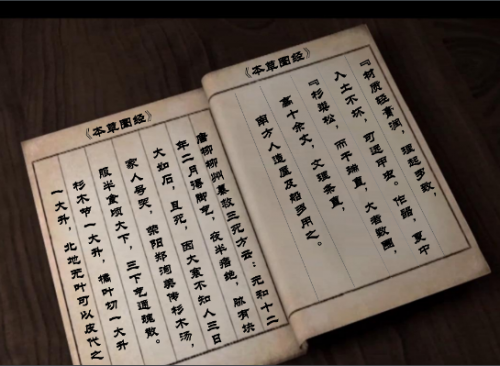 《本草图经》
『材质轻膏润,理起罗致,
入土不坏,可远甲虫。作器,夏中
『杉梁松,而干端直,大者数围,
高十余丈,文理条直,
南方人造屋及船多用之。
《本草图经》
唐柳柳州纂救三死方云:元和十二
年二月得脚气,夜半痞绝,胁有块
大如石,且死,因大寒不知人三日
家人号哭,荥阳郑洵美传杉木汤,
服半食顷大下,三下气通块散。
杉木节一大升,橘叶切一大升
一大升,北地无叶可以皮代之